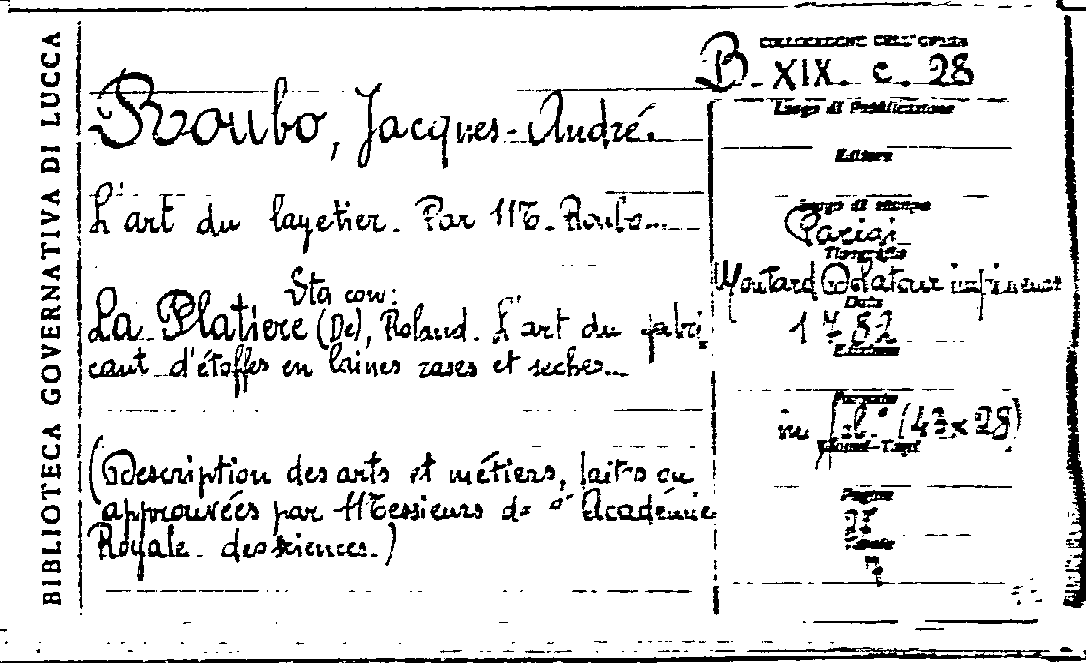 BIBLIOTECA GOVERNATIVA DI LUCCA
Roubo, Jacques-André.
L'art du layetier. Par M. Roubo...
Sta con:
La Platiere (De), Roland. L'art du fabri
cant d'étoffes en laines rases et seches...
(Description des arts et métiers, faites ou
approuvées par Messieurs de l'Académie
Royale des sciences.)
COLLOCAZIONE DELL'OPERA
B. XIX. c. 28
Luogo di Pubblicazione
Editore
Luogo di stampa
Parigi
Tipografia
Moutard Delatour
Data
1782
Edizione
Formato
in fol.° (43x28)
Pagine